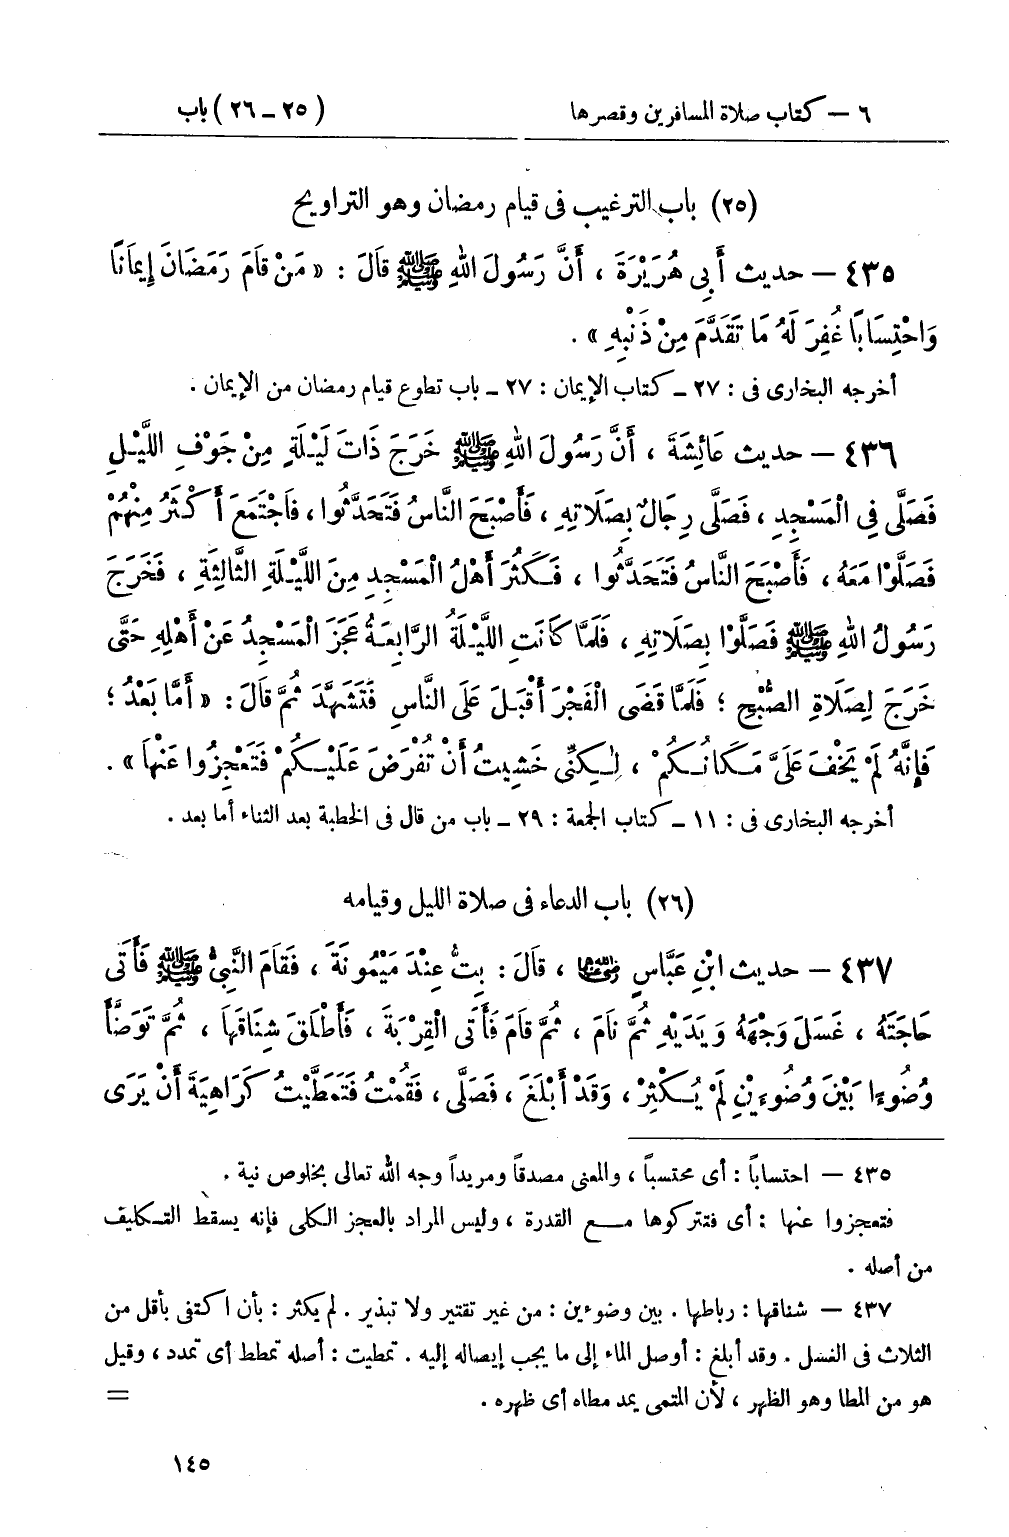 ٦ — كتاب صلاة المسافرين وقصرها (٢٥ – ٢٦) باب
(٢٥) باب الترغيب فى قيام رمضان وهو التراويح
٤٣٥ — حديث أَبِى هُرَيْرَةَ ، أَنَّ رَسُولَ اللهِ ﷺ قَالَ : « مَنْ قَامَ رَمَضَانَ إِيمَانًا
وَاحْتِسَابًا غُفِرَ لَهُ مَا تَقَدَّمَ مِنْ ذَنْبِهِ » .
أخرجه البخارى فى : ٢٧ – كتاب الإيمان : ٢٧ – باب تطوع قيام رمضان من الإيمان .
٤٣٦ — حديث عَائِشَةَ ، أَنَّ رَسُولَ اللهِ ﷺ خَرَجَ ذَاتَ لَيْلَةٍ مِنْ جَوْفِ اللَّيْلِ
فَصَلَّى فِي الْمَسْجِدِ ، فَصَلَّى رِجَالٌ بِصَلَاتِهِ ، فَأَصْبَحَ النَّاسُ فَتَحَدَّثُوا ، فَاجْتَمَعَ أَكْثَرُ مِنْهُمْ
فَصَلَّوْا مَعَهُ ، فَأَصْبَحَ النَّاسُ فَتَحَدَّثُوا ، فَكَثُرَ أَهْلُ الْمَسْجِدِ مِنَ اللَّيْلَةِ الثَّالِثَةِ ، فَخَرَجَ
رَسُولُ اللهِ ﷺ فَصَلَّوْا بِصَلَاتِهِ ، فَلَمَّا كَانَتِ اللَّيْلَةُ الرَّابِعَةُ عَجَزَ الْمَسْجِدُ عَنْ أَهْلِهِ حَتَّى
خَرَجَ لِصَلَاةِ الصُّبْحِ ؛ فَلَمَّا قَضَى الْفَجْرَ أَقْبَلَ عَلَى النَّاسِ فَتَشَهَّدَ ثُمَّ قَالَ : « أَمَّا بَعْدُ ؛
فَإِنَّهُ لَمْ يَخْفَ عَلَىَّ مَكَانُكُمْ ، لٰكِنِّى خَشِيتُ أَنْ تُفْرَضَ عَلَيْكُمْ فَتَعْجِزُوا عَنْهَا » .
أخرجه البخارى فى : ١١ – كتاب الجمعة : ٢٩ – باب من قال فى الخطبة بعد الثناء أما بعد .
(٢٦) باب الدعاء فى صلاة الليل وقيامه
٤٣٧ — حديث ابْنِ عَبَّاسٍ رضي الله عنهما ، قَالَ : بِتُّ عِنْدَ مَيْمُونَةَ ، فَقَامَ النَّبِىُّ ﷺ فَأَتَى
حَاجَتَهُ ، غَسَلَ وَجْهَهُ وَيَدَيْهِ ثُمَّ نَامَ ، ثُمَّ قَامَ فَأَتَى الْقِرْبَةَ ، فَأَطْلَقَ شِنَاقَهَا ، ثُمَّ تَوَضَّأَ
وُضُوءًا بَيْنَ وُضُوءَيْنِ لَمْ يُكْثِرْ ، وَقَدْ أَبْلَغَ ، فَصَلَّى ، فَقُمْتُ فَتَمَطَّيْتُ كَرَاهِيَةَ أَنْ يَرَى
٤٣٥ — احتساباً : أى محتسباً ، والمعنى مصدقاً ومريداً وجه الله تعالى بخلوص نية .
فتعجزوا عنها : أى فتتركوها مع القدرة ، وليس المراد بالعجز الكلى فإنه يسقط التكليف
من أصله .
٤٣٧ — شناقها : رباطها . بين وضوءين : من غير تقتير ولا تبذير . لم يكثر : بأن اكتفى بأقل من
الثلاث فى الغسل . وقد أبلغ : أوصل الماء إلى ما يجب إيصاله إليه . تمطيت : أصله تمطط أى تمدد ، وقيل
هو من المطا وهو الظهر ، لأن المتمى يمد مطاه أى ظهره . =
١٤٥